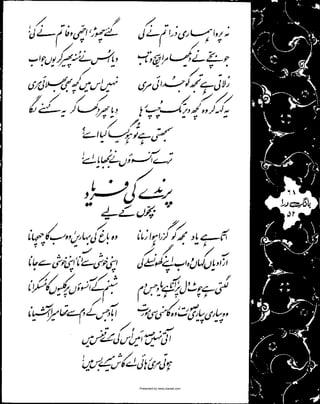 نہ پروا ہماری ذرا تم نے کی گئے چھوڑ، اچھی وفا تم نے کی
جو بچے نے دیکھا مرا پیچ و تاب دیا اس نے منہ پھیر کر یوں جواب
رلاتی ہے تجھ کو جدائی مری نہیں اس میں کچھ بھی بھلائی مری
یہ کہہ کر وہ کچھ دیر تک چپ رہا دیا پھر دکھا کر یہ کہنے لگا
سمجھتی ہے تو ہو گیا کیا اسے؟
ترے آنسوؤں نے بجھایا اسے!
پرندے کی فریاد
بچوں کے لیے
آتا ہے یاد مجھ کو گزرا ہوا زمانا وہ باغ کی بہاریں وہ سب کا چہچہانا
آزادیاں کہاں وہ اب اپنے گھونسلے کی اپنی خوشی سے آنا اپنی خوشی سے جانا
لگتی ہے چوٹ دل پر، آتا ہے یاد جس دم شبنم کے آنسوؤں پر کلیوں کا مسکرانا
وہ پیاری پیاری صورت، وہ کامنی سی مورت آباد جس کے دم سے تھا میرا آشیانا
آتی نہیں صدائیں اس کی مرے قفس میں
ہوتی مری رہائی اے کاش میرے بس میں!
بانگِ درا
۵۲
Presented by